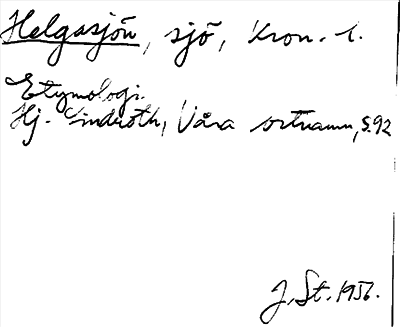 Helgasjön, sjö, Kron. l.
Etymologi.
Hj. Lindroth, Våra ortnamn, s.92
J. St. 1956.